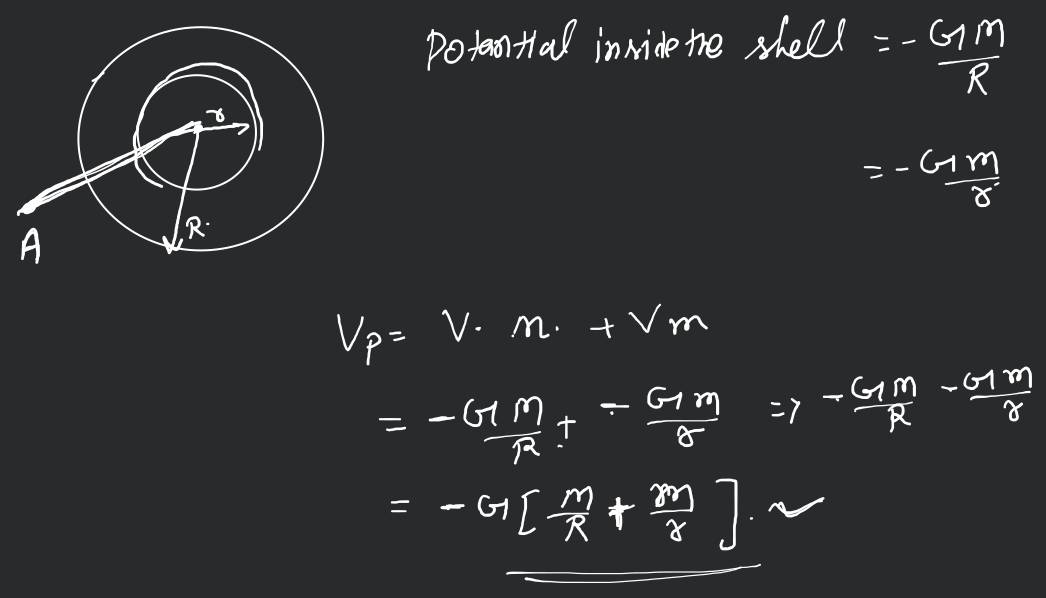 Potential inside the shell = - GM/R
= - Gm/r
r
R.
A
Vp = V. M. + Vm
= - GM/R + - Gm/r => - GM/R - Gm/r
= - G [ M/R + m/r ].